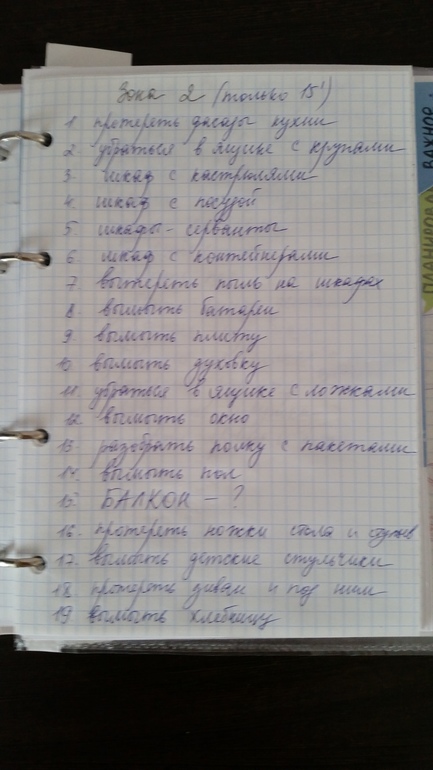 Зона 2 (только 15')
1. протереть фасады кухни
2. убраться в ящике с крупами
3. шкаф с кастрюлями
4. шкаф с посудой
5. шкафы - серванты
6. шкаф с контейнерами
7. вытереть пыль на шкафах
8. вымыть батареи
9. вымыть плиту
10. вымыть духовку
11. убраться в ящике с ложками
12. вымыть окно
13. разобрать полку с пакетами
14. вымыть пол
15. БАЛКОН - ?
16. протереть ножки стола и стульев
17. вымыть детские стульчики
18. протереть диван и под ним
19. вымыть хлебницу
ВАЖНОЕ
ПЛАНИРОВА